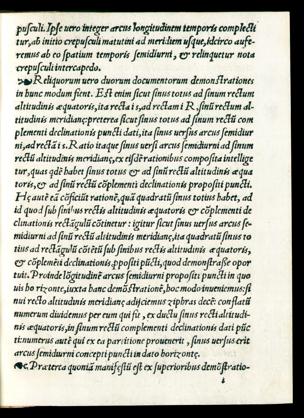 pusculi. Ipse uero integer arcus longitudinem temporis complecti
tur, ab initio crepusculi matutini ad meridiem usque, idcirco aufe-
remus ab eo spatium temporis semidiurni, & relinquetur nota
crepusculi intercapedo.
Reliquorum uero duorum documentorum demonstrationes
in hunc modum fient. Est enim sicut sinus totus ad sinum rectum
altitudinis æquatoris, ita recta i s, ad rectam i R, sinũ rectum al-
titudinis meridianæ: præterea sicut sinus totus ad sinum rectũ com
plementi declinationis puncti dati, ita sinus uersus arcus semidiur
ni, ad rectã i s. Ratio itaque sinus uersi arcus semidiurni ad sinum
rectũ altitudinis meridianæ, ex eisdẽ rationibus composita intellige
tur, quas quidẽ habet sinus totus & ad sinũ rectũ altitudinis æqua
toris, & ad sinũ rectũ cõplementi declinationis propositi puncti.
Hæc autẽ eã cõficiũt rationẽ, quã quadratũ sinus totius habet, ad
id quod sub sinibus rectis altitudinis æquatoris & cõplementi de
clinationis rectãgulũ cõtinetur: igitur sicut sinus uersus arcus se-
midiurni ad sinũ rectũ altitudinis meridianæ, ita quadratũ sinus to
tius ad rectãgulũ cõtẽtũ sub sinibus rectis altitudinis æquatoris,
& cõplemẽti declinationis, ppositi pũcti, quod demonstrasse opor
tuit. Proinde lõgitudinẽ arcus semidiurni propositi puncti in quo
uis horizonte, iuxta hanc demõstrationẽ, hoc modo inueniemus: si
nui recto altitudinis meridianæ adijciemus ziphras decẽ: constatũ
numerum diuidemus per eum qui fit, ex ductu sinus recti altitudi-
nis æquatoris, in sinum rectũ complementi declinationis dati pũc
ti: numerus autẽ qui ex ea partitione prouenerit, sinus uersus erit
arcus semidiurni concepti puncti in dato horizonte.
Præterea quoniã manifestũ est ex superioribus demõstratio-